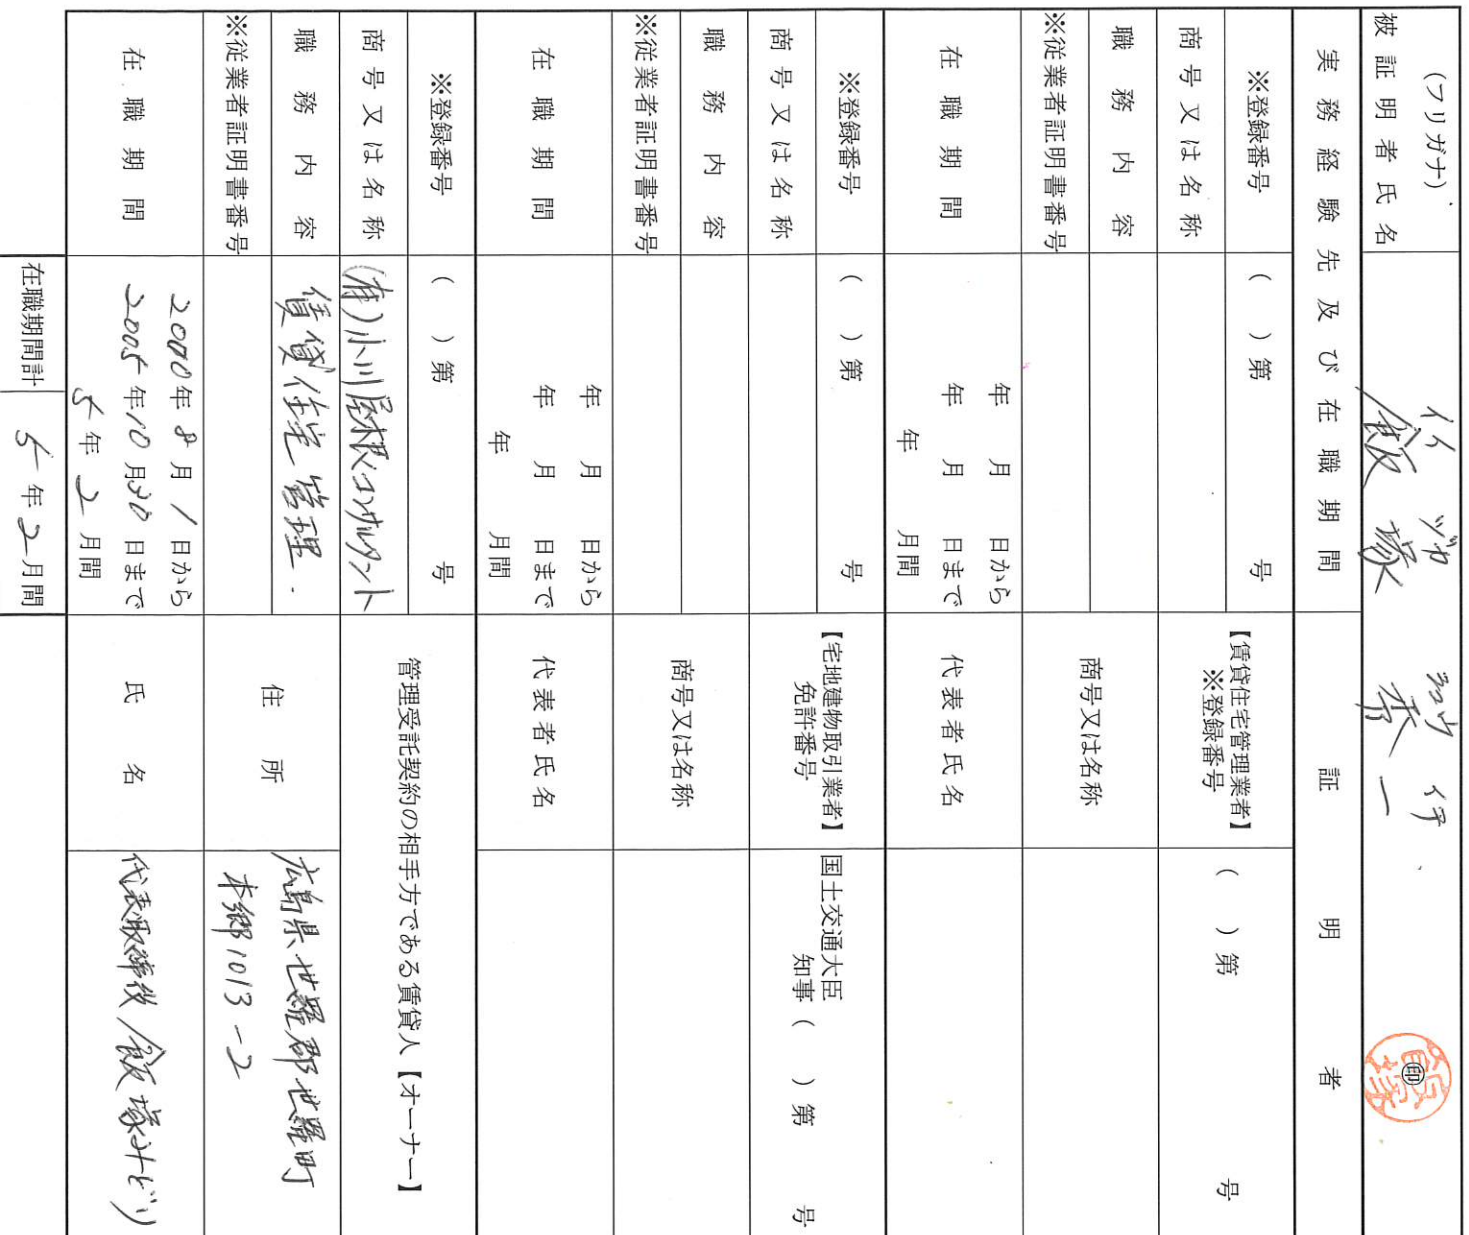 (フリガナ) イイ ヅカ リョウ イチ
被証明者氏名 飯塚 一 ㊞
飯塚
実務経験先及び在職期間 証明者
※登録番号 ( )第 号
【賃貸住宅管理業者】
※登録番号
( )第 号
商号又は名称
職務内容
商号又は名称
※従業者証明書番号
在職期間
年 月 日から
年 月 日まで
年 月間
代表者氏名
※登録番号 ( )第 号
【宅地建物取引業者】
免許番号
国土交通大臣
知事( )第 号
商号又は名称
職務内容
商号又は名称
※従業者証明書番号
在職期間
年 月 日から
年 月 日まで
年 月間
代表者氏名
※登録番号 ( )第 号
管理受託契約の相手方である賃貸人【オーナー】
商号又は名称 (有)小川屋根コンサルタント
職務内容 賃貸住宅管理.
住所
広島県世羅郡世羅町
本郷1013-2
※従業者証明書番号
在職期間
2000年8月1日から
2005年10月30日まで
5年2月間
氏名 代表取締役 飯塚みどり
在職期間計 5年2月間